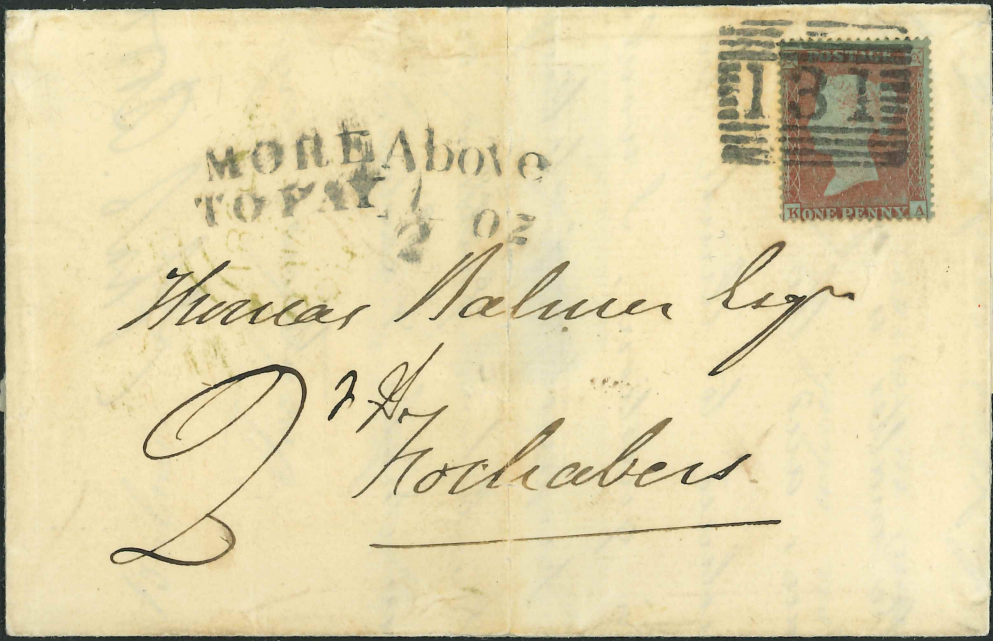 POSTAGE
131
K ONE PENNY A
MORE Above
TO PAY 1/2 OZ
Thomas Balmer Esqr
2
Fochabers